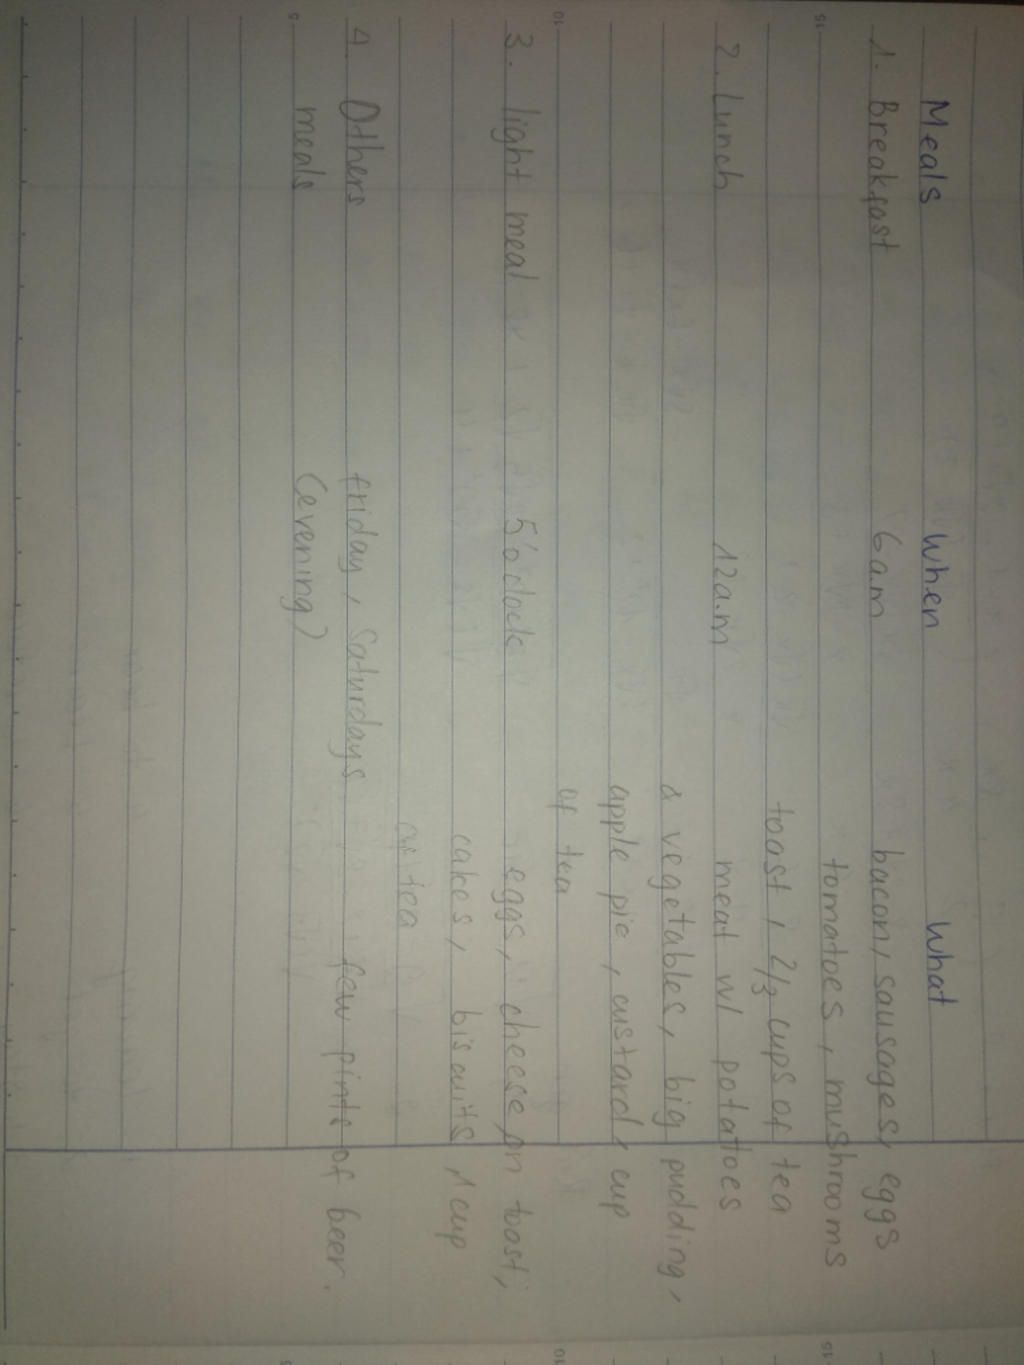 Meals When What
1. Breakfast 6am bacon, sausages, eggs
tomatoes, mushrooms
toast, 2/3 cups of tea
2. Lunch 12a.m meat w/ potatoes
& vegetables, big pudding,
apple pie, custard, cup
of tea
3. light meal 5'o'clock eggs, cheese on toast,
cakes, biscuits, 1 cup
of tea
4. Others friday, saturdays few pints of beer.
meals (evening)